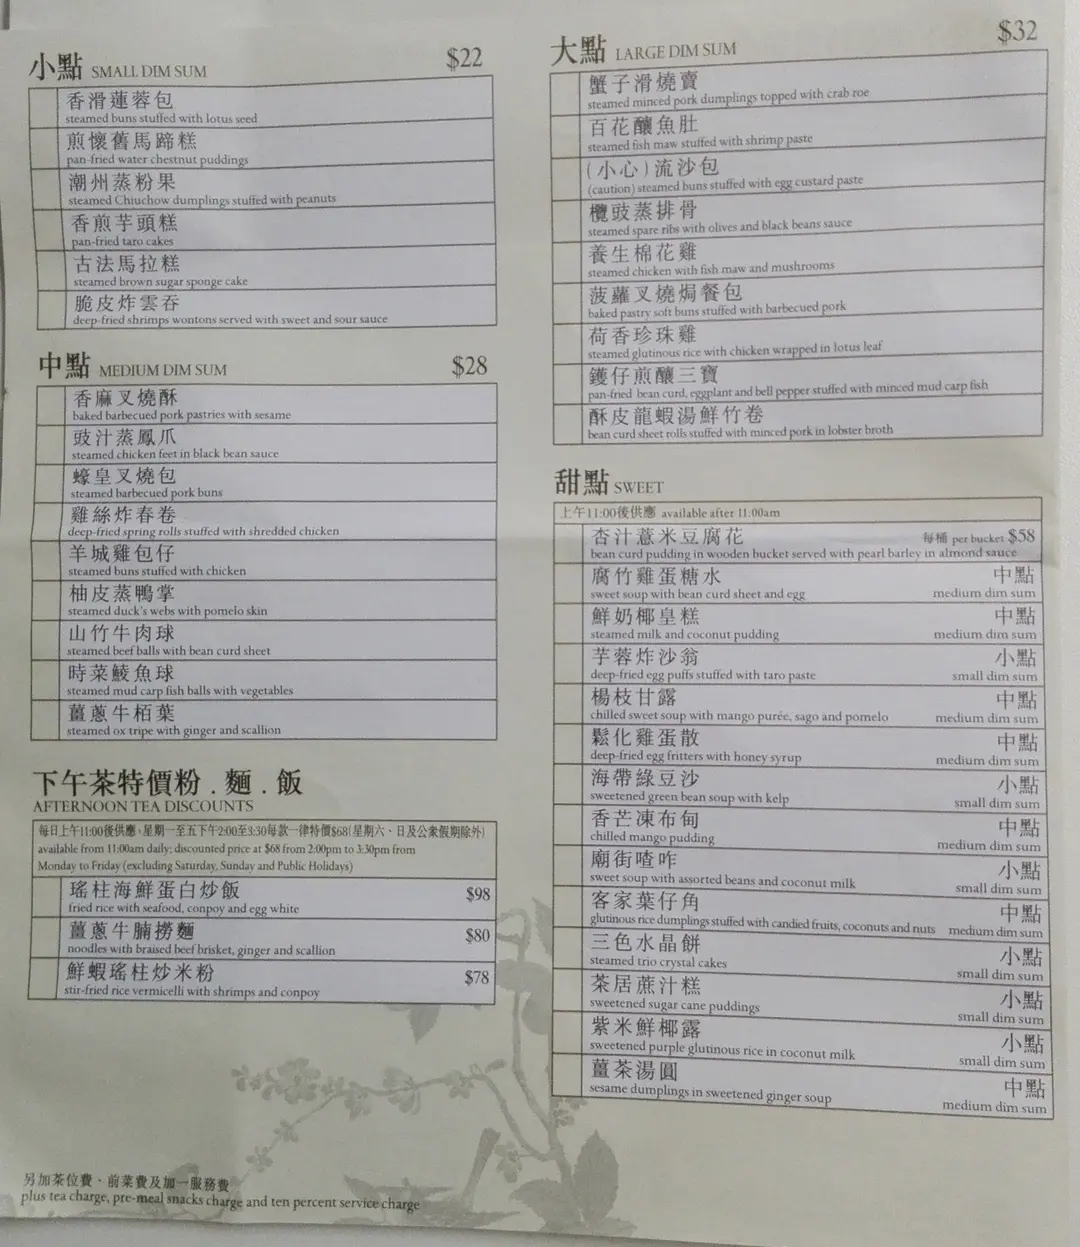 小點 SMALL DIM SUM $22
香滑蓮蓉包
steamed buns stuffed with lotus seed
煎懷舊馬蹄糕
pan-fried water chestnut puddings
潮州蒸粉果
steamed Chiuchow dumplings stuffed with peanuts
香煎芋頭糕
pan-fried taro cakes
古法馬拉糕
steamed brown sugar sponge cake
脆皮炸雲吞
deep-fried shrimps wontons served with sweet and sour sauce
中點 MEDIUM DIM SUM $28
香麻叉燒酥
baked barbecued pork pastries with sesame
豉汁蒸鳳爪
steamed chicken feet in black bean sauce
蠔皇叉燒包
steamed barbecued pork buns
雞絲炸春卷
deep-fried spring rolls stuffed with shredded chicken
羊城雞包仔
steamed buns stuffed with chicken
柚皮蒸鴨掌
steamed duck's webs with pomelo skin
山竹牛肉球
steamed beef balls with bean curd sheet
時菜鯪魚球
steamed mud carp fish balls with vegetables
薑蔥牛栢葉
steamed ox tripe with ginger and scallion
下午茶特價粉 . 麵 . 飯
AFTERNOON TEA DISCOUNTS
每日上午11:00後供應，星期一至五下午2:00至3:30每款一律特價$68(星期六、日及公衆假期除外)
available from 11:00am daily; discounted price at $68 from 2:00pm to 3:30pm from
Monday to Friday (excluding Saturday, Sunday and Public Holidays)
瑤柱海鮮蛋白炒飯 $98
fried rice with seafood, conpoy and egg white
薑蔥牛腩撈麵 $80
noodles with braised beef brisket, ginger and scallion
鮮蝦瑤柱炒米粉 $78
stir-fried rice vermicelli with shrimps and conpoy
另加茶位費、前菜費及加一服務費
plus tea charge, pre-meal snacks charge and ten percent service charge
大點 LARGE DIM SUM $32
蟹子滑燒賣
steamed minced pork dumplings topped with crab roe
百花釀魚肚
steamed fish maw stuffed with shrimp paste
(小心)流沙包
(caution) steamed buns stuffed with egg custard paste
欖豉蒸排骨
steamed spare ribs with olives and black beans sauce
養生棉花雞
steamed chicken with fish maw and mushrooms
菠蘿叉燒焗餐包
baked pastry soft buns stuffed with barbecued pork
荷香珍珠雞
steamed glutinous rice with chicken wrapped in lotus leaf
鑊仔煎釀三寶
pan-fried bean curd, eggplant and bell pepper stuffed with minced mud carp fish
酥皮龍蝦湯鮮竹卷
bean curd sheet rolls stuffed with minced pork in lobster broth
甜點 SWEET
上午11:00後供應 available after 11:00am
杏汁薏米豆腐花 每桶 per bucket $58
bean curd pudding in wooden bucket served with pearl barley in almond sauce
腐竹雞蛋糖水 中點
sweet soup with bean curd sheet and egg medium dim sum
鮮奶椰皇糕 中點
steamed milk and coconut pudding medium dim sum
芋蓉炸沙翁 小點
deep-fried egg puffs stuffed with taro paste small dim sum
楊枝甘露 中點
chilled sweet soup with mango purée, sago and pomelo medium dim sum
鬆化雞蛋散 中點
deep-fried egg fritters with honey syrup medium dim sum
海帶綠豆沙 小點
sweetened green bean soup with kelp small dim sum
香芒凍布甸 中點
chilled mango pudding medium dim sum
廟街喳咋 小點
sweet soup with assorted beans and coconut milk small dim sum
客家葉仔角 中點
glutinous rice dumplings stuffed with candied fruits, coconuts and nuts medium dim sum
三色水晶餅 小點
steamed trio crystal cakes small dim sum
茶居蔗汁糕 小點
sweetened sugar cane puddings small dim sum
紫米鮮椰露 小點
sweetened purple glutinous rice in coconut milk small dim sum
薑茶湯圓 中點
sesame dumplings in sweetened ginger soup medium dim sum